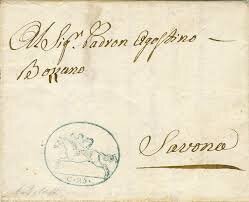 Al Sigr. Padron Agostino
Bozzano
Savona
C. 25.